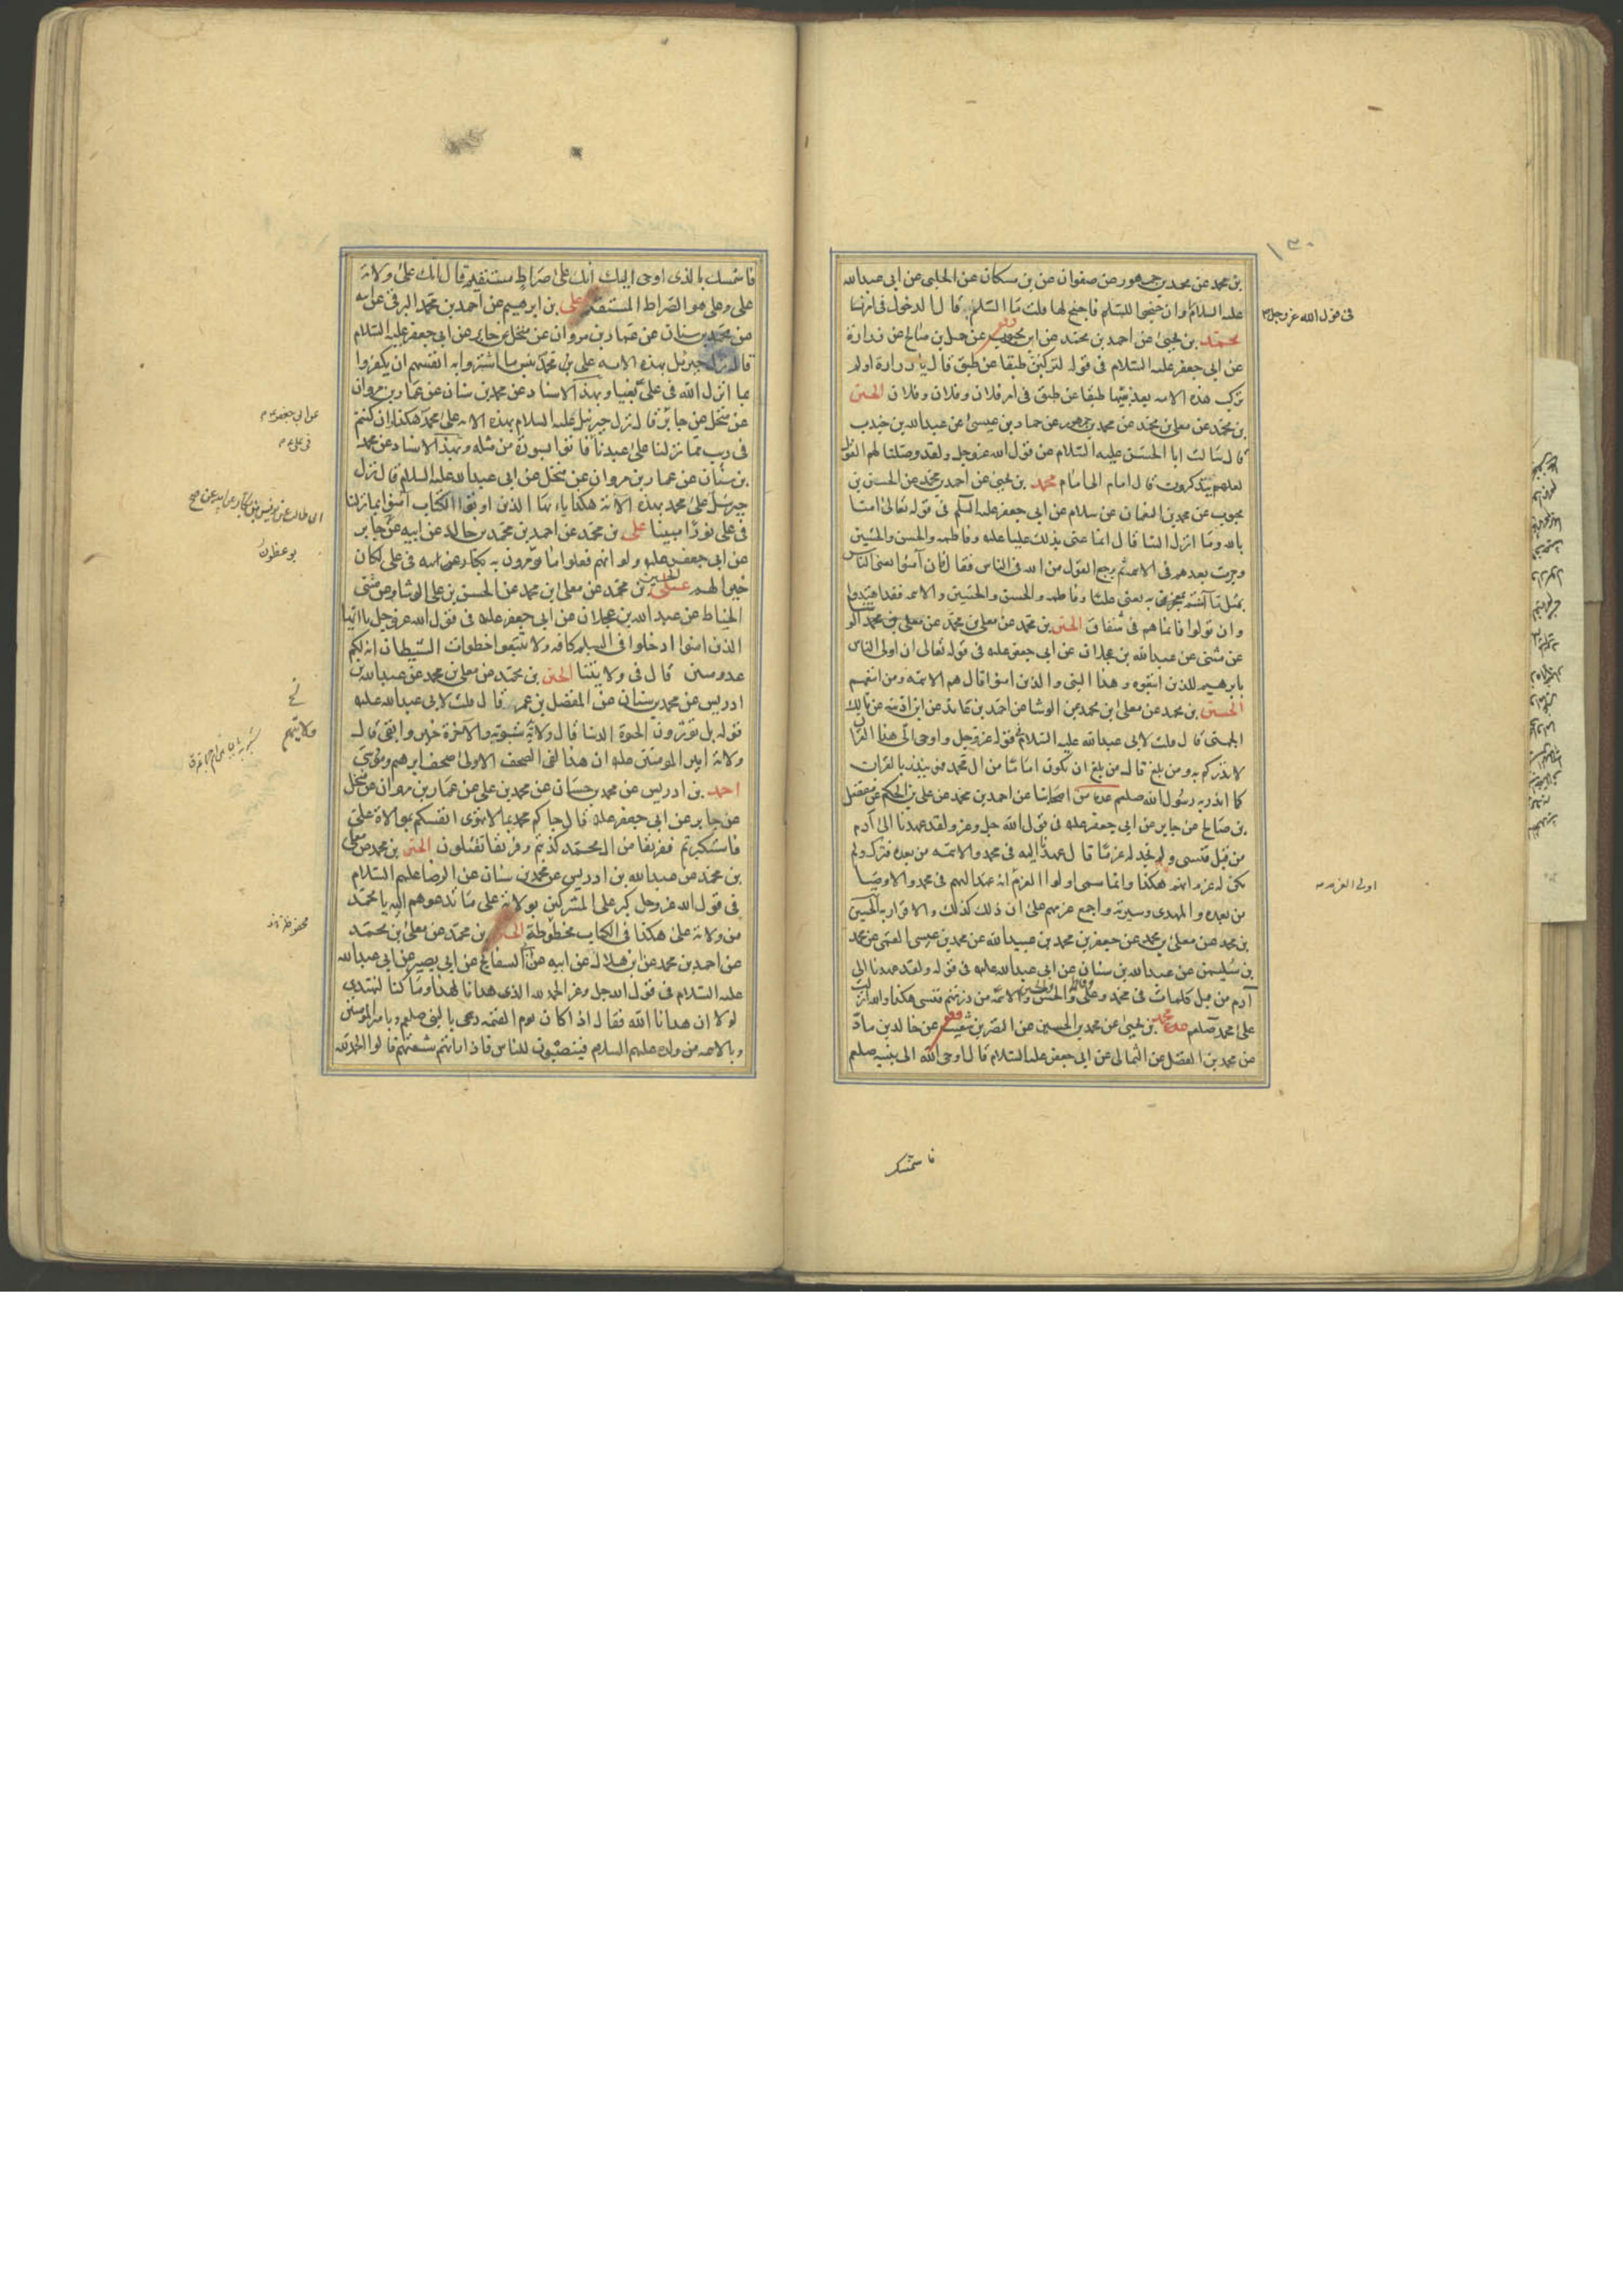 ١٣٠
بن محمد عن محمد بن جمهور عن صفوان عن بن مسكان عن الحلبى عن ابى عبدالله
عليه السلام وان جنحوا للسلم فاجنح لها قلت ما السلم قال الدخول فى امرنا
فى قول الله عز وجل
محمد بن يحيى عن احمد بن محمد عن ابن محبوب عن جميل بن صالح عن زرارة
عن ابى جعفر عليه السلام فى قوله لتركبن طبقا عن طبق قال يا زرارة اولم
تركب هذه الامه بعد نبيها طبقا عن طبق فى امر فلان وفلان وفلان الحسين
بن محمد عن معلى بن محمد عن محمد بن جمهور عن حماد بن عيسى عن عبدالله بن جندب
قال سالت ابا الحسن عليه السلام عن قول الله عزوجل ولقد وصلنا لهم القول
لعلهم يتذكرون قال امام الى امام محمد بن يحيى عن احمد بن محمد عن الحسن بن
محبوب عن محمد بن النعمان عن سلام عن ابى جعفر عليه السلم فى قوله تعالى امنا
بالله وما انزل الينا قال انما عنى بذلك عليا عله وفاطمه والحسن والحسين
وجرت بعدهم فى الائمه ثم يرجع القول من الله فى الناس فقال فان آمنوا يعنى الناس
بمثل ما آمنتم به يعنى عليا وفاطمه والحسن والحسين والائمه فقد اهتدوا
وان تولوا فانما هم فى شقاق الحسين بن محمد عن معلى بن محمد عن معلى بن محمد الو
عن مثنى عن عبدالله بن عجلان عن ابى جعفر عله فى قوله تعالى ان اولى الناس
بابرهيم للذين اتبعوه وهذا النبى والذين امنوا قال هم الائمه ومن اتبعهم
الحسين بن محمد عن معلى بن محمد عن الوشا عن احمد بن عائذ عن ابن اذينه عن مالك
الجهنى قال قلت لابى عبدالله عليه السلام قوله عزوجل واوحى الى هذا القران
لانذركم به ومن بلغ قال من بلغ ان يكون اماما من ال محمد فهو ينذر بالقران
كما انذر به رسول الله صلعم عدة من اصحابنا عن احمد بن محمد عن على بن الحكم عن مفضل
بن صالح عن جابر عن ابى جعفر عله فى قول الله جل وعز ولقد عهدنا الى آدم
من قبل فنسى ولم نجد له عزما قال عهدنا اليه فى محمد والائمه من بعده فترك ولم
يكن له عزم انهم هكذا وانما سمى اولوا العزم انه عهد اليهم فى محمد والاوصيا
اولى العزم
من بعده والمهدى وسيرته واجمع عزمهم على ان ذلك كذلك والاقرار به الحسين
بن محمد عن معلى بن محمد عن جعفر بن محمد بن عبيدالله عن محمد بن عيسى القمى عن محمد
بن سليمن عن عبدالله بن سنان عن ابى عبدالله عله فى قوله ولقد عهدنا الى
آدم من قبل كلمات فى محمد وعلى وفاطمه والحسن والحسين والائمه من ذريتهم فنسى هكذا والله انزلت
على محمد صلعم محمد بن يحيى عن محمد بن الحسين عن النضر بن شعيب عن خالد بن ماد
عن محمد بن الفضل عن الثمالى عن ابى جعفر عليه السلام قال اوحى الله الى نبيه صلعم
فاستمسك
فاستمسك بالذى اوحى اليك انك على صراط مستقيم قال انك على ولاية
على وعلى هو الصراط المستقيم على بن ابرهيم عن احمد بن محمد البرقى عن ابيه
عن محمد بن سنان عن عمار بن مروان عن منخل عن جابر عن ابى جعفر عليه السلام
قال نزل جبرئيل بهذه الايه على محمد بئس ما اشتروا به انفسهم ان يكفروا
بما انزل الله فى على بغيا وبهذا الاسناد عن محمد بن سنان عن عمار بن مروان
عن منخل عن جابر قال نزل جبرئيل عليه السلام بهذه الايه على محمد هكذا وان كنتم
عن ابى جعفر
فى ريب مما نزلنا على عبدنا فاتوا بسورة من مثله وبهذا الاسناد عن محمد
فى على
بن سنان عن عمار بن مروان عن منخل عن ابى عبدالله عليه السلام قال نزل
جبرئيل على محمد بهذه الاية هكذا يا ايها الذين اوتوا الكتاب آمنوا بما نزلنا
فى على نورا مبينا على بن محمد عن احمد بن محمد بن خالد عن ابيه عن جابر
ابى طالب عن يونس بن بكار عن ابيه عن
عن ابى جعفر عله ولو انهم فعلوا ما يؤمرون به فى على لكان
يوعظون
خيرا لهم الحسين بن محمد عن معلى بن محمد عن الحسن بن على الوشا عن مثنى
الحناط عن عبدالله بن عجلان عن ابى جعفر عله فى قول الله عزوجل يا ايها
الذين امنوا ادخلوا فى السلم كافه ولا تتبعوا خطوات الشيطان انه لكم
عدو مبين قال فى ولايتنا الحسين بن محمد عن معلى بن محمد عن عبدالله بن
ادريس عن محمد بن سنان عن المفضل بن عمر قال قلت لابى عبدالله عله
قوله بل تؤثرون الحيوة الدنيا قال ولاية شبويه والآخرة خير وابقى قال
ولايتهم
ولاية امير المومنين عله ان هذا لفى الصحف الاولى صحف ابرهيم وموسى
احمد بن ادريس عن محمد بن حسان عن محمد بن على عن عمار بن مروان عن منخل
عن جابر عن ابى جعفر عله قال جاكم محمد بما لا تهوى انفسكم بموالاة على
فاستكبرتم ففريقا من ال محمد كذبتم وفريقا تقتلون الحسين بن محمد عن معلى
بن محمد عن عبدالله بن ادريس عن محمد بن سنان عن الرضا عليه السلام
فى قول الله عزوجل كبر على المشركين بولاية على ما تدعوهم اليه يا محمد
من ولاية على هكذا فى الكتاب مخطوطة الحسين بن محمد عن معلى بن محمد
محفوظة
عن احمد بن محمد عن ابن هلال عن ابيه عن ابى السفاتج عن ابى بصير عن ابى عبدالله
عليه السلام فى قول الله جل وعز الحمد لله الذى هدانا لهذا وما كنا لنهتدى
لولا ان هدانا الله فقال اذا كان يوم القيمه دعى بالنبى صلعم وبامير المومنين
وبالائمه من ولده عليهم السلام فينصبون للناس فاذا راتهم شيعتهم قالوا الحمدلله